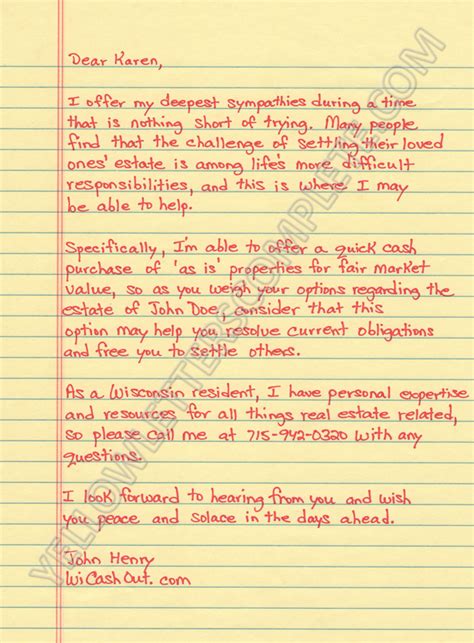 Dear Karen,
I offer my deepest sympathies during a time
that is nothing short of trying. Many people
find that the challenge of settling their loved
ones' estate is among life's more difficult
responsibilities, and this is where I may
be able to help.
Specifically, I'm able to offer a quick cash
purchase of 'as is' properties for fair market
value, so as you weigh your options regarding the
estate of John Doe, consider that this
option may help you resolve current obligations
and free you to settle others.
As a Wisconsin resident, I have personal expertise
and resources for all things real estate related,
so please call me at 715-942-0320 with any
questions.
I look forward to hearing from you and wish
you peace and solace in the days ahead.
John Henry
WiCashOut.com
YELLOWLETTERSCOMPLETE.COM